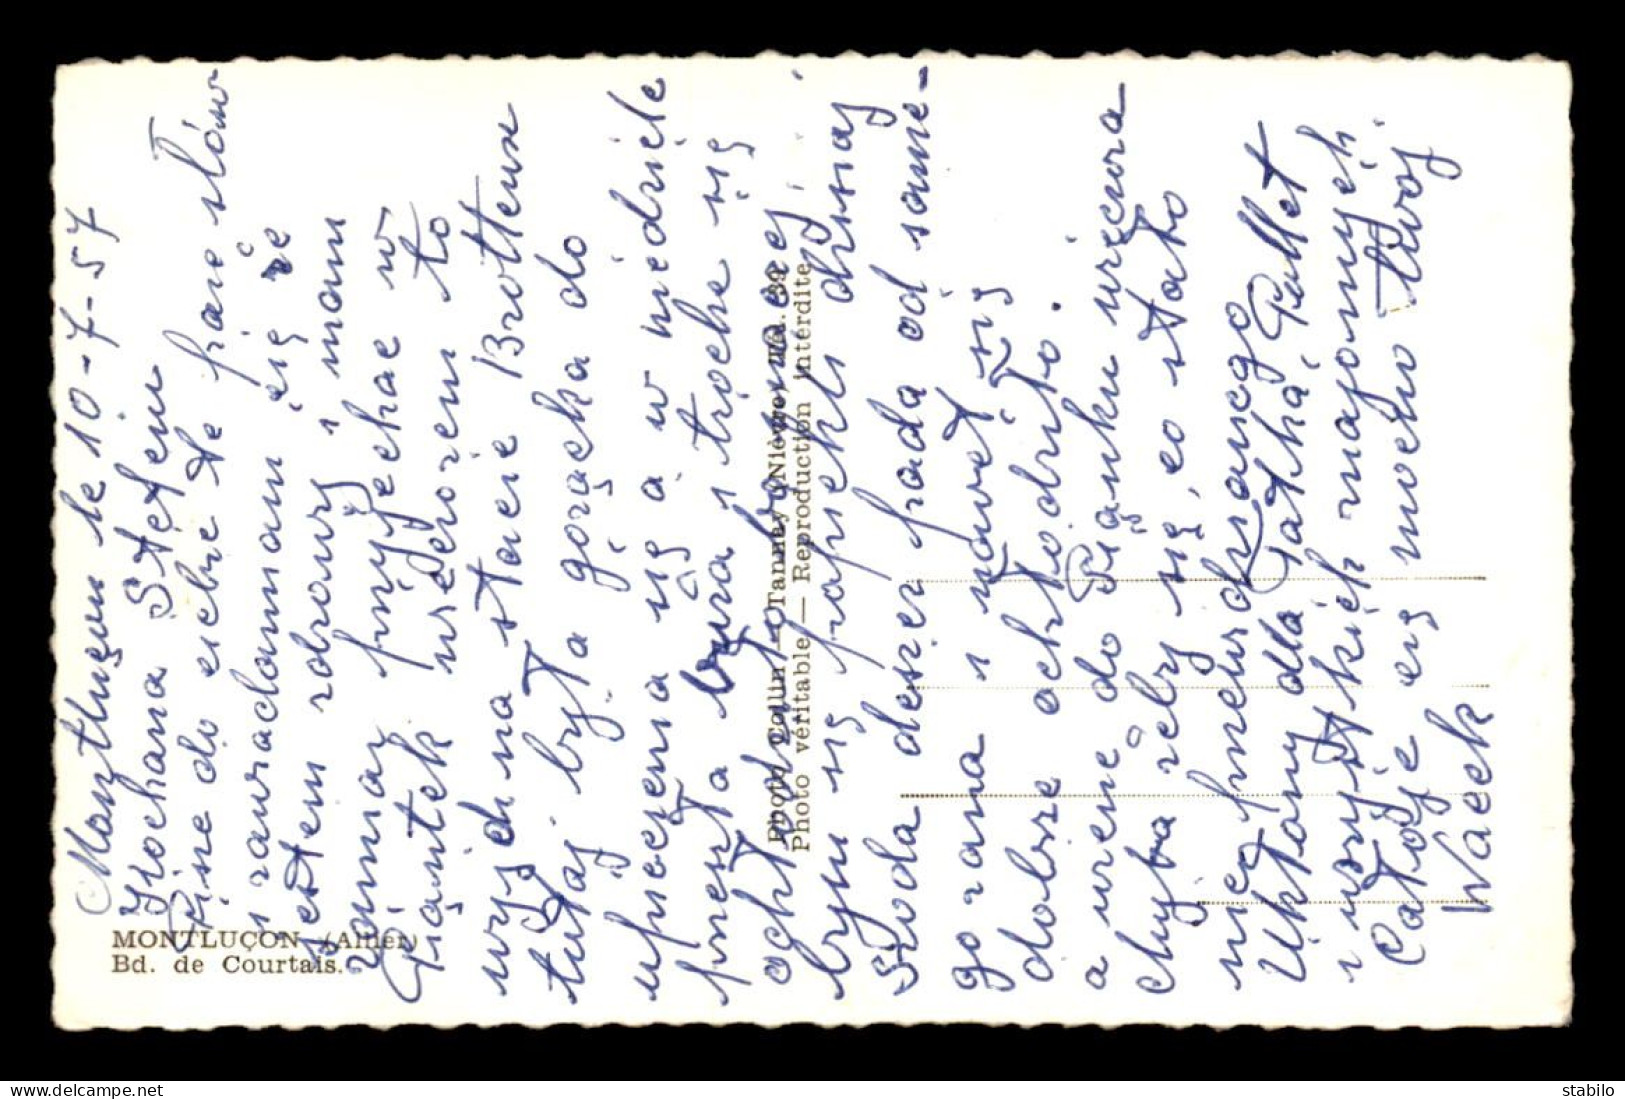 Montluçon le 10-7-57
Kochana Stefeu
Pisze do ciebie te pare słów
i zawiadamiam cię że
jestem zdrowy i mam
zamiar przyjechac w
Piątek wieczorem to
wyjdz na stacie Brotteux
tutaj była gorączka do
upieczenia się a w niedziele
przeszła bura i troche się
ochłodziło bo my
bym się popiekli dzisiaj
Sroda deszcz pada od same-
go rana i nawet się
dobrze ochłodziło.
a wiene do Piątku wieczora
chyba żeby się, co stało
nie przewidzianego
Ukłony dla Pathá, Pullet
i wszystkich znajomych.
Całoje cię mocno twój
Wacek
MONTLUÇON (Allier)
Bd. de Courtais.
Photo Collin — Tannay (Nièvre) Tél. 39
Photo véritable — Reproduction interdite
stabilo
www.delcampe.net